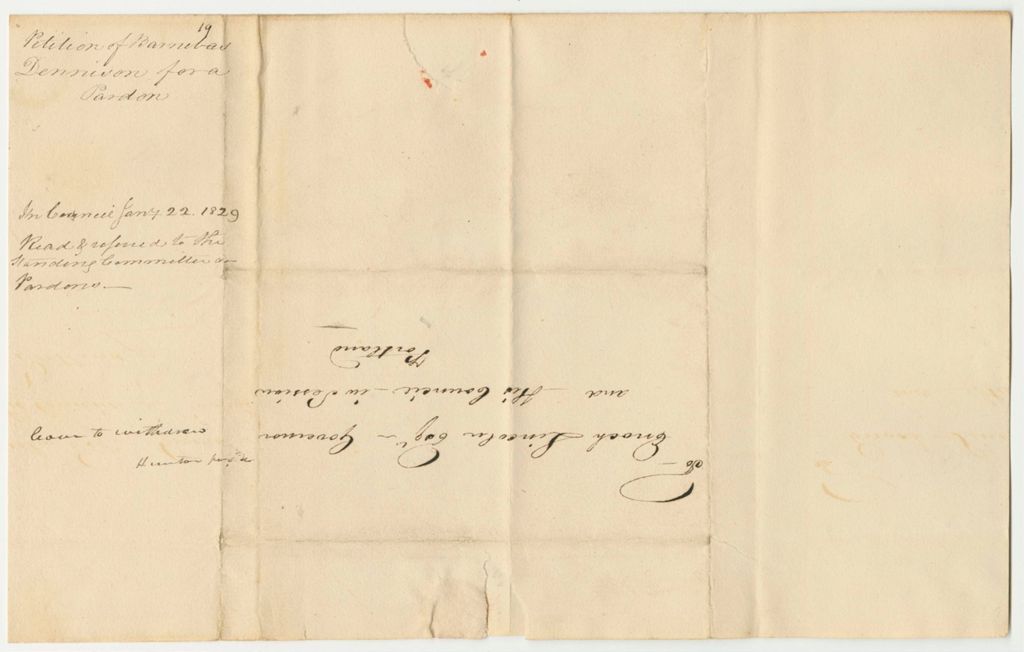 19
Petition of Barnabas
Dennison for a
Pardon
In Council Jany 22. 1829
Read & referred to the
Standing Committee on
Pardons—
leave to withdraw
Hunton
To—
Enoch Lincoln Esqr – Governor
and His Council – in Session
Portland